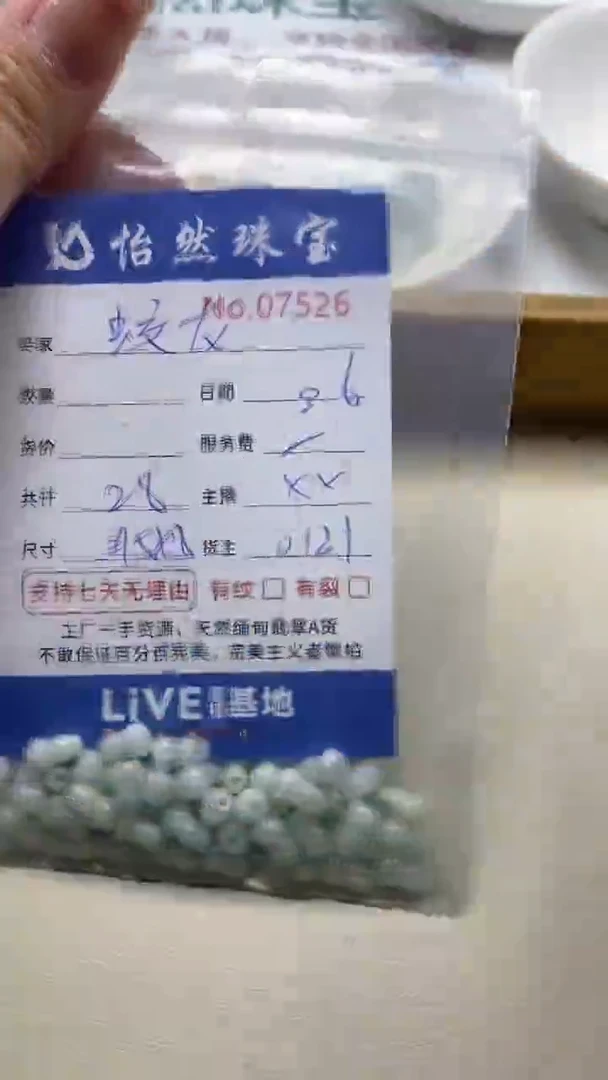 怡然珠宝
No.07526
买家
数量 日期 8 6
货价 服务费
共计 28 主播 XX
尺寸 货主 0121
支持七天无理由 有纹 有裂
工厂一手货源、天然缅甸翡翠A货
不敢保证百分百完美，完美主义者慎拍
LiVE 基地